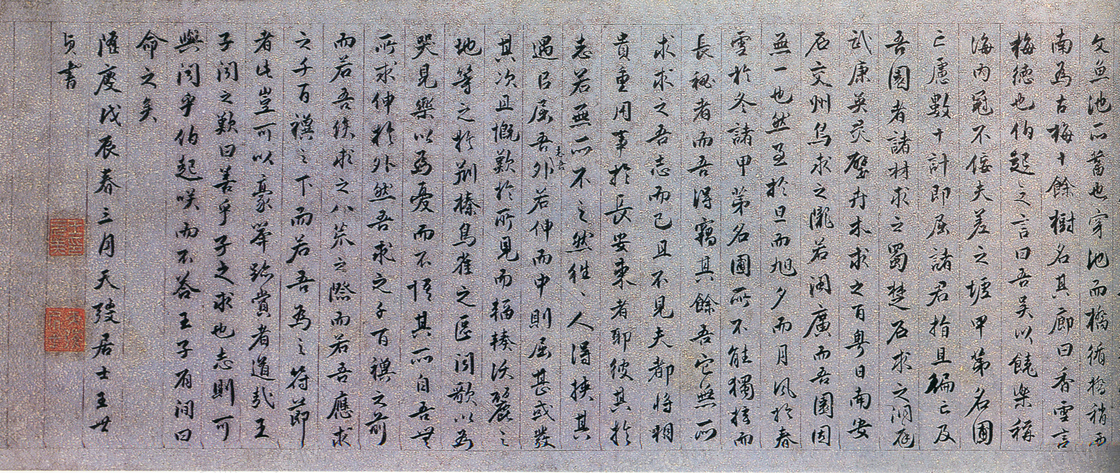 文魚池所蓄也穿池而橋循橋稍西
南為古梅十餘樹名其廊曰香雪言
梅德也伯起之言曰吾吳以饒樂稱
海內冠不佞夫差之墟甲第名園
亡慮數十計即屈諸君指且徧亡及
吾園者諸材求之蜀楚石求之洞庭
武康英灵壁卉木求之百粵日南安
石交州鳥求之隴若閩廣而吾園固
無一也然至於旦而旭夕而月風於春
雪於冬諸甲第名園所不能獨擅而
長秘者而吾得竊其餘吾它無所
求求之吾志而已且不見夫都將相
貴重用事於長安東者耶彼其於
志若無所不之然往〻人得挾其
遇臣屈吾外若伸而中則屈甚或發
其次且慨歎於所見而沃麗之
地等之於荊榛鳥雀之區聞歌以為
哭見樂以為憂而不悟其所自吾無
所求伸於外然吾求之千百禩之前
而若吾俟求之八荒之際而若吾應求
之千百禩之下而若吾為之符節
者此豈可以豪舉跡賞者道哉王
子聞之歎曰善乎子之求也志則可
與聞乎伯起咲而不答王子有間曰
命之矣
隆慶戊辰春三月天弢居士王世
貞書